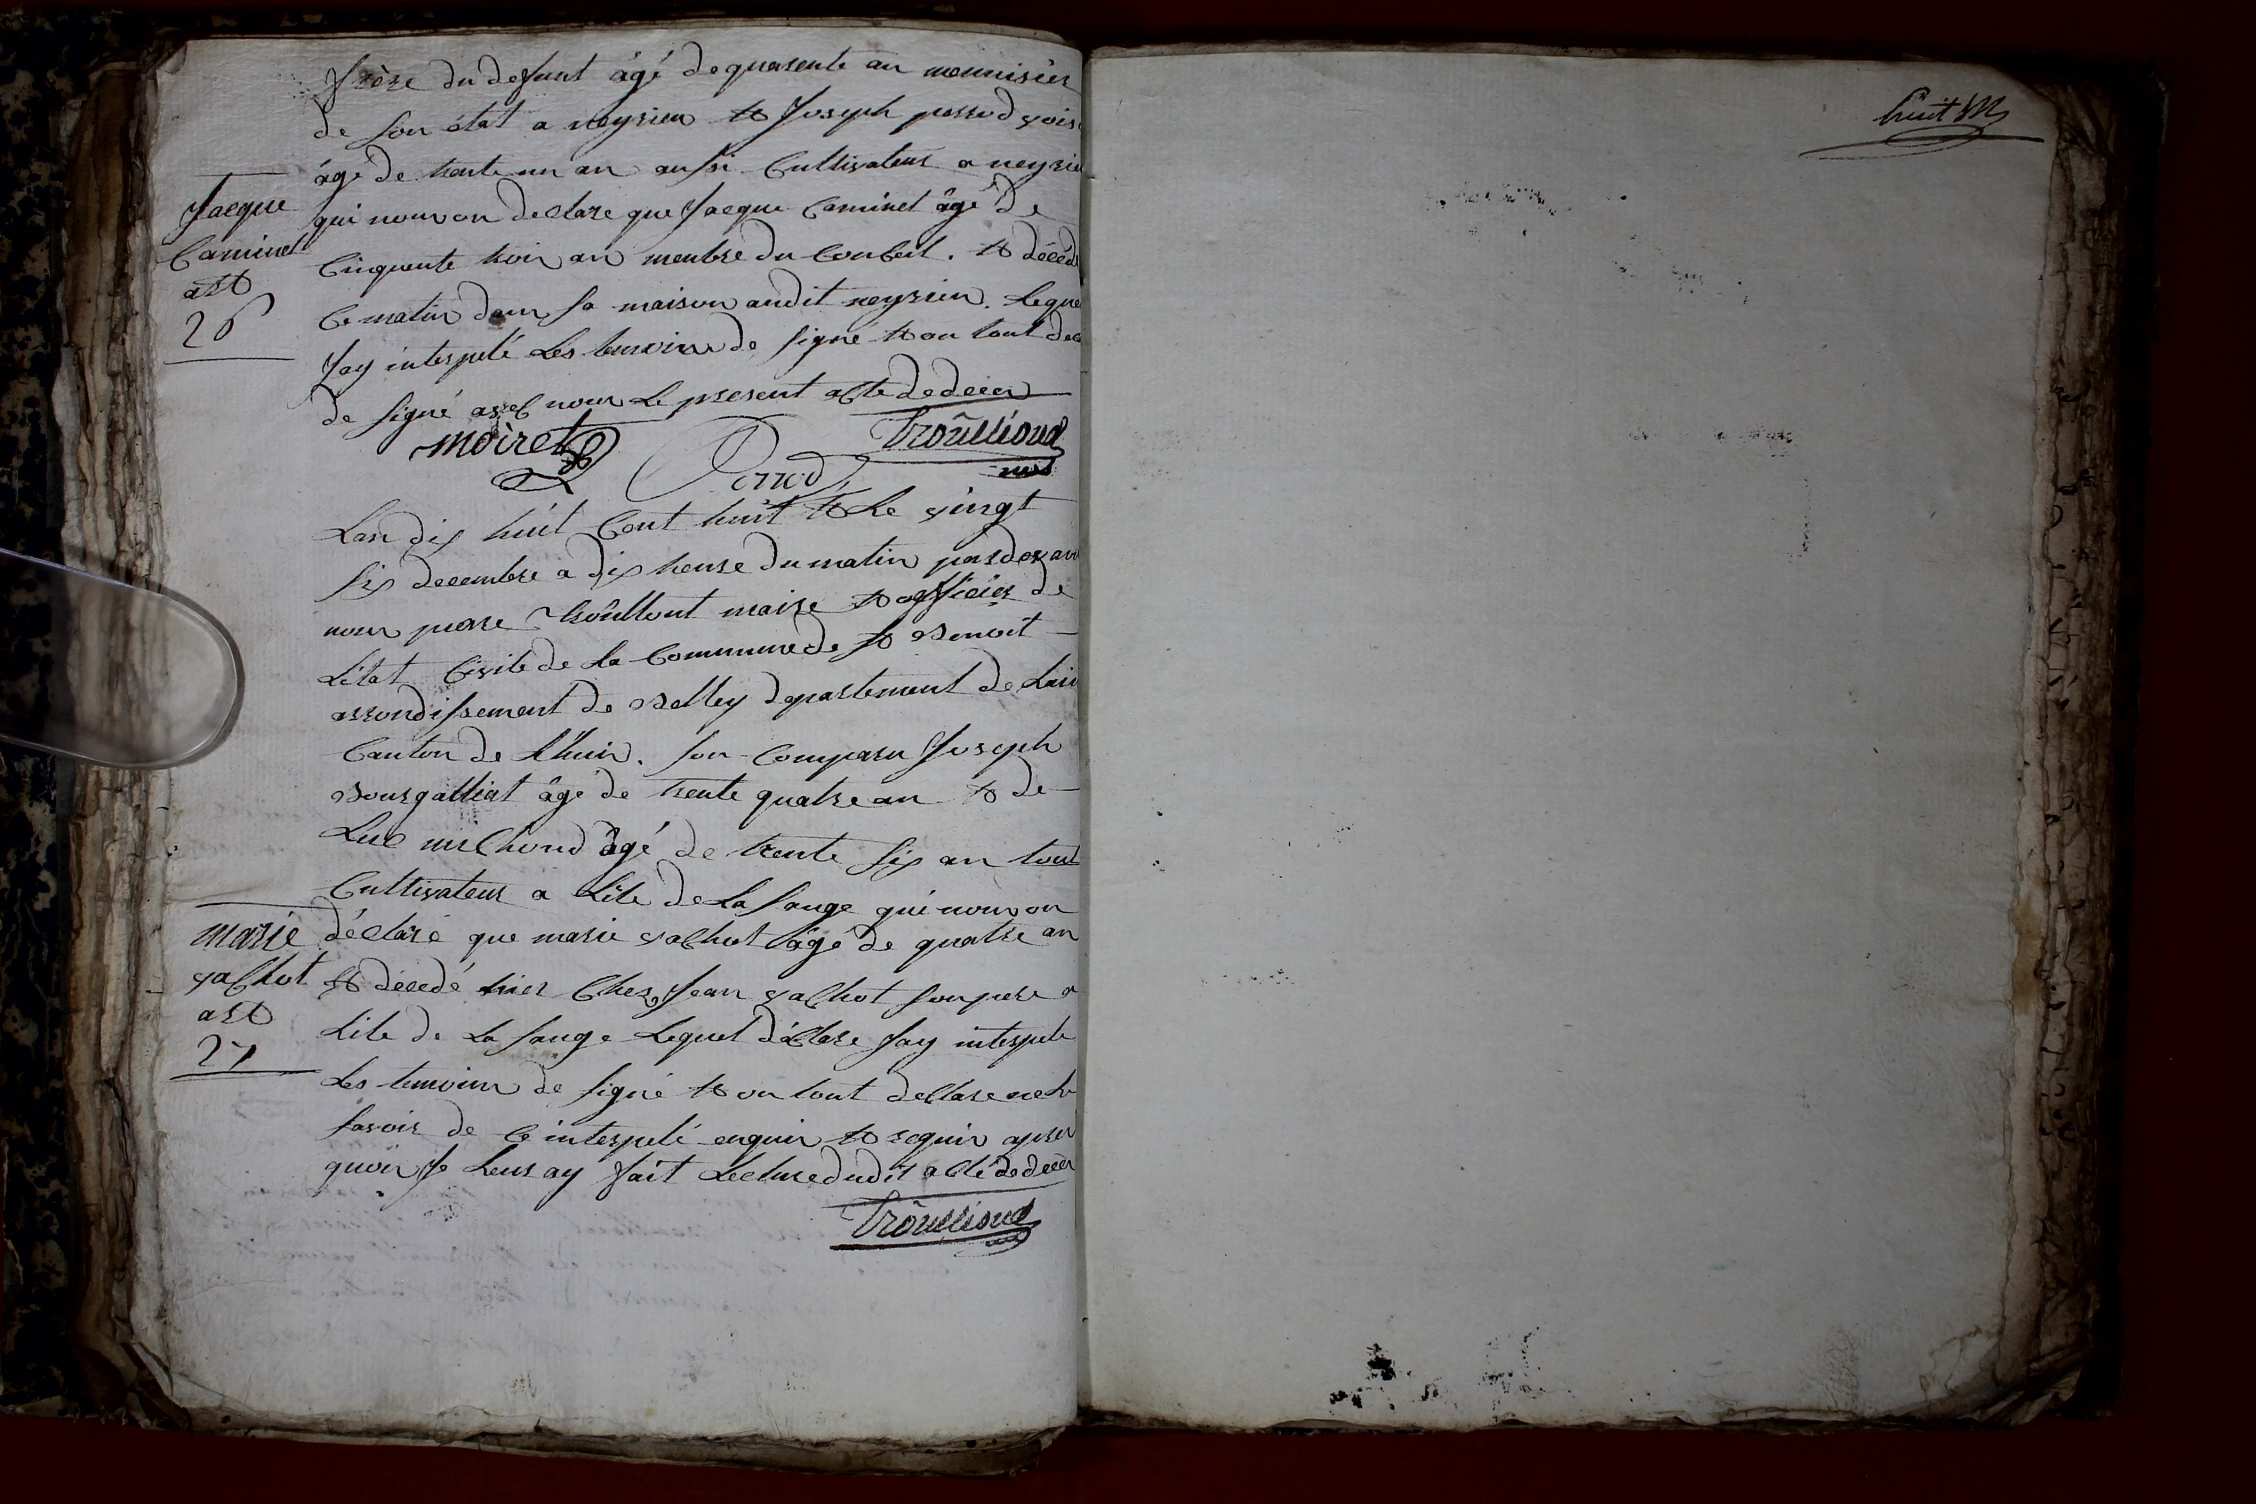 frère du defunt âgé de quarente an mennisier
de son état a neyrieu et Joseph perrod vois
âge de trente un an aussi Cultivateur a neyrieu
Jacque
Caminet
art
26
qui nous on declare que Jacque Caminet âgé de
Cinquente troix an membre du Conseil. et décédé
Ce matin dans sa maison audit neyrieu. Leque
Jay interpelé Les temoins de signé et on tout dec
de signé avec nous Le present acte de decer
moiret
Perrod
Troullioud
Lan dix huit Cent huit et Le vingt
six decembre a dix heure du matin par devant
nous piere Troulloud maire et officier de
Létat Civile de La Commune de st Benoit
arrondissement de Belley departement de Lain
Canton de Lhuis. son Comparu Joseph
Bourgalliat âgé de trente quatre an et de
Luc milliond âgé de trente six an tout
Cultivateur a Lile de La Sauge qui nous on
marie
vachot
art
27
déclaré que marie vachot âgé de quatre an
et décedé hier Chez Jean vachot son pere a
Lile de La sauge Lequel déclare Jay interpele
Les temoins de signé et on tout declare ne Le
savoir de Ce interpelé enquir et requir apres
quoi Je Leur ay fait Lecture dudit acte de decer
Troullioud
huit